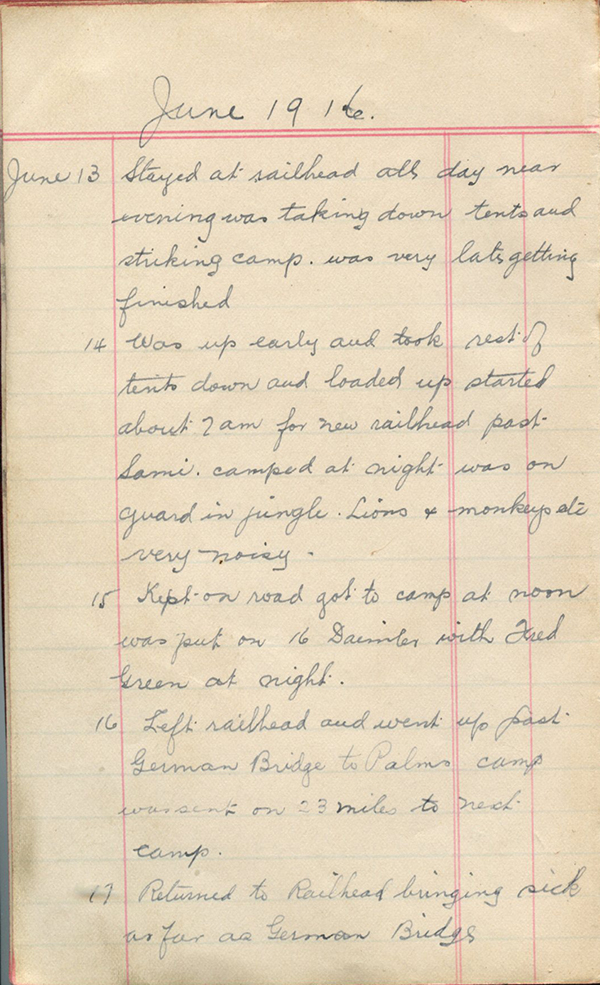 June 1916.
June 13 Stayed at railhead all day near
evening was taking down tents and
striking camp. was very late getting
finished
14 Was up early and took rest of
tents down and loaded up started
about 7 am for new railhead past
Sami. camped at night was on
guard in jungle. Lions & monkeys etc
very noisy.
15 Kept on road got to camp at noon
was put on 16 Daimler with Fred
Green at night.
16 Left railhead and went up past
German Bridge to Palms camp
was sent on 23 miles to next
camp.
17 Returned to Railhead bringing sick
as far as German Bridge